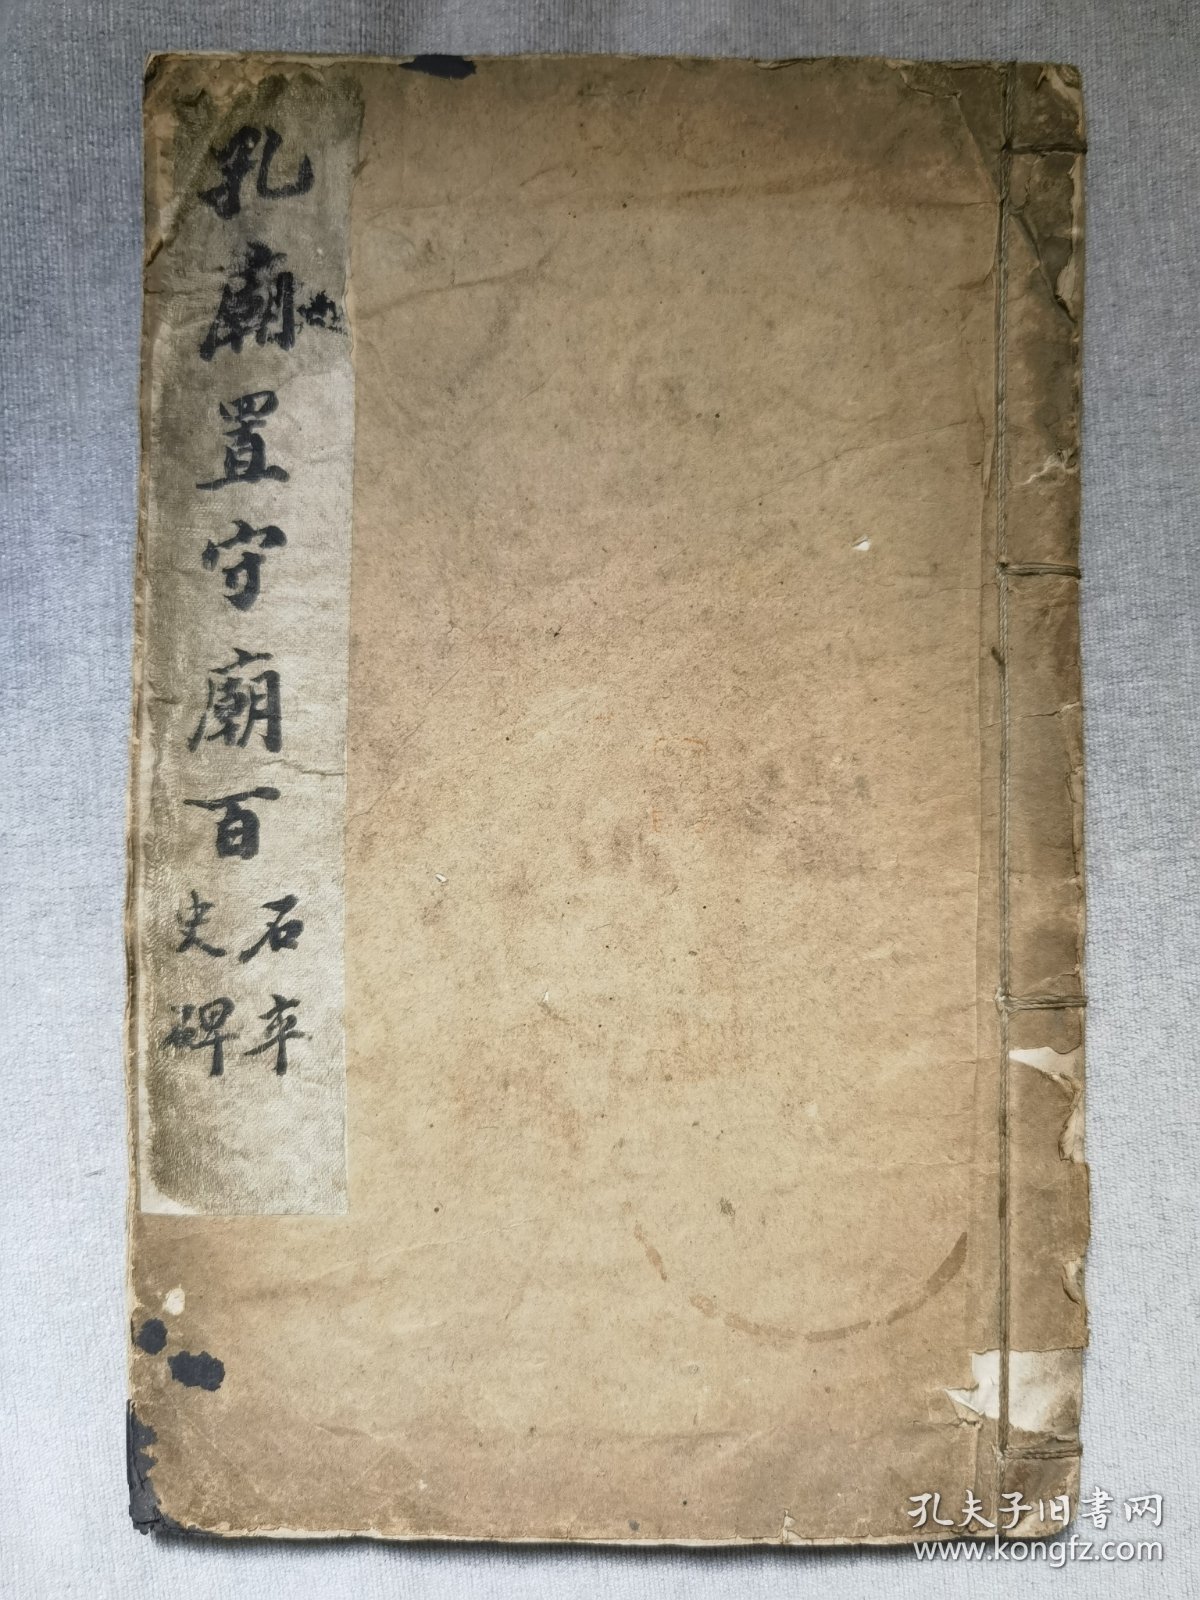 孔廟置守廟百
石卒
史碑
孔夫子旧書网
www.kongfz.com